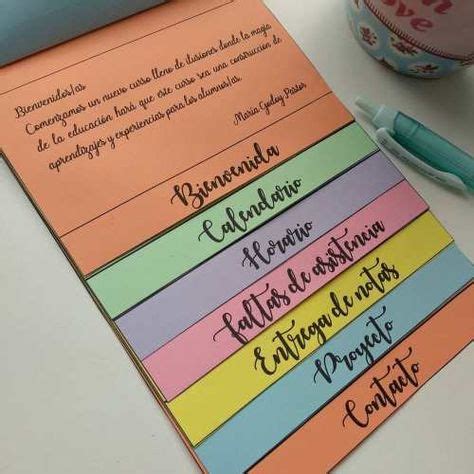 Bienvenidos/as
Comenzamos un nuevo curso lleno de ilusiones donde la magia
de la educación hará que este curso sea una construcción de
aprendizajes y experiencias para los alumnos/as.
María Godoy Pastor
Bienvenida
Calendario
Horario
Faltas de asistencia
Entrega de notas
Proyecto
Contacto
love